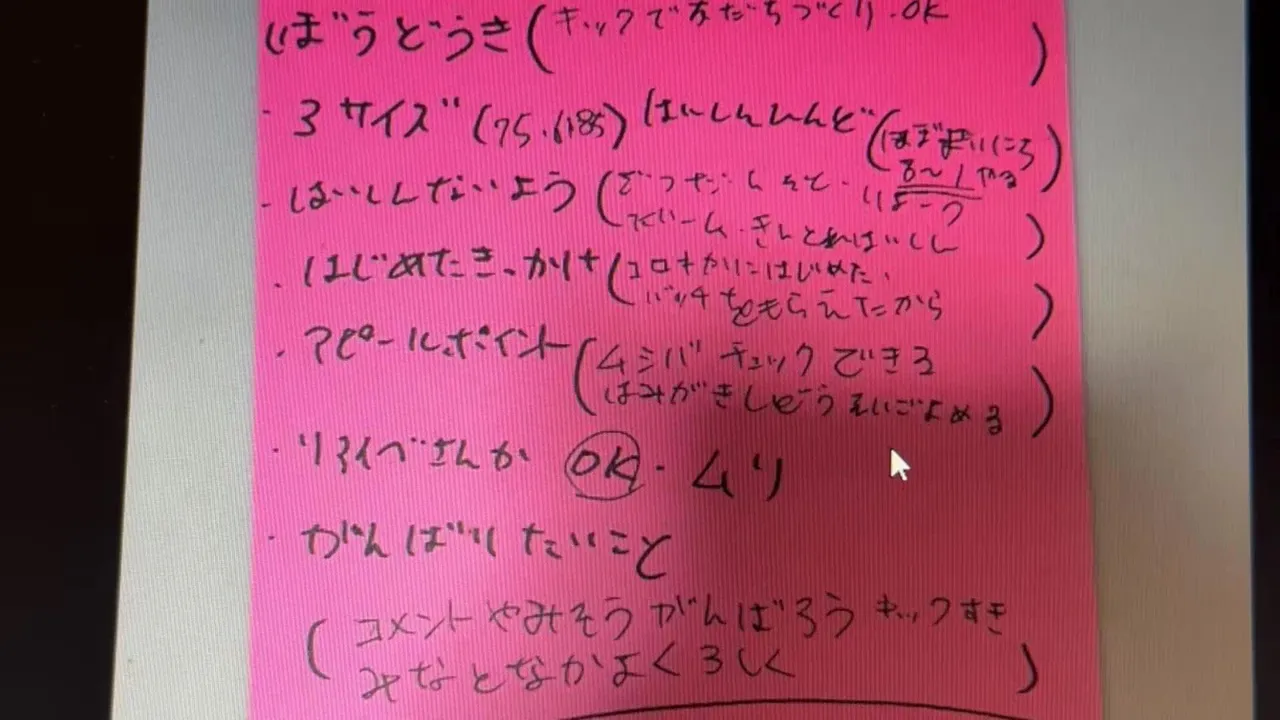 しぼうどうき(キックで友だちづくり.OK)
・3サイズ(75.61.85)はいしんひんど(ほぼまいにち
・はいしんないよう(ざつだん
・はじめたきっかけ(コロナかにはじめた、
バッチをもらえたから)
・アピールポイント(ムシバチェックできる
はみがきしどうえいごよめる)
・リアイベさんか OK・ムリ
・がんばりたいこと
(コメントやみそうがんばろうキックすき
みなとなかよくろしく)